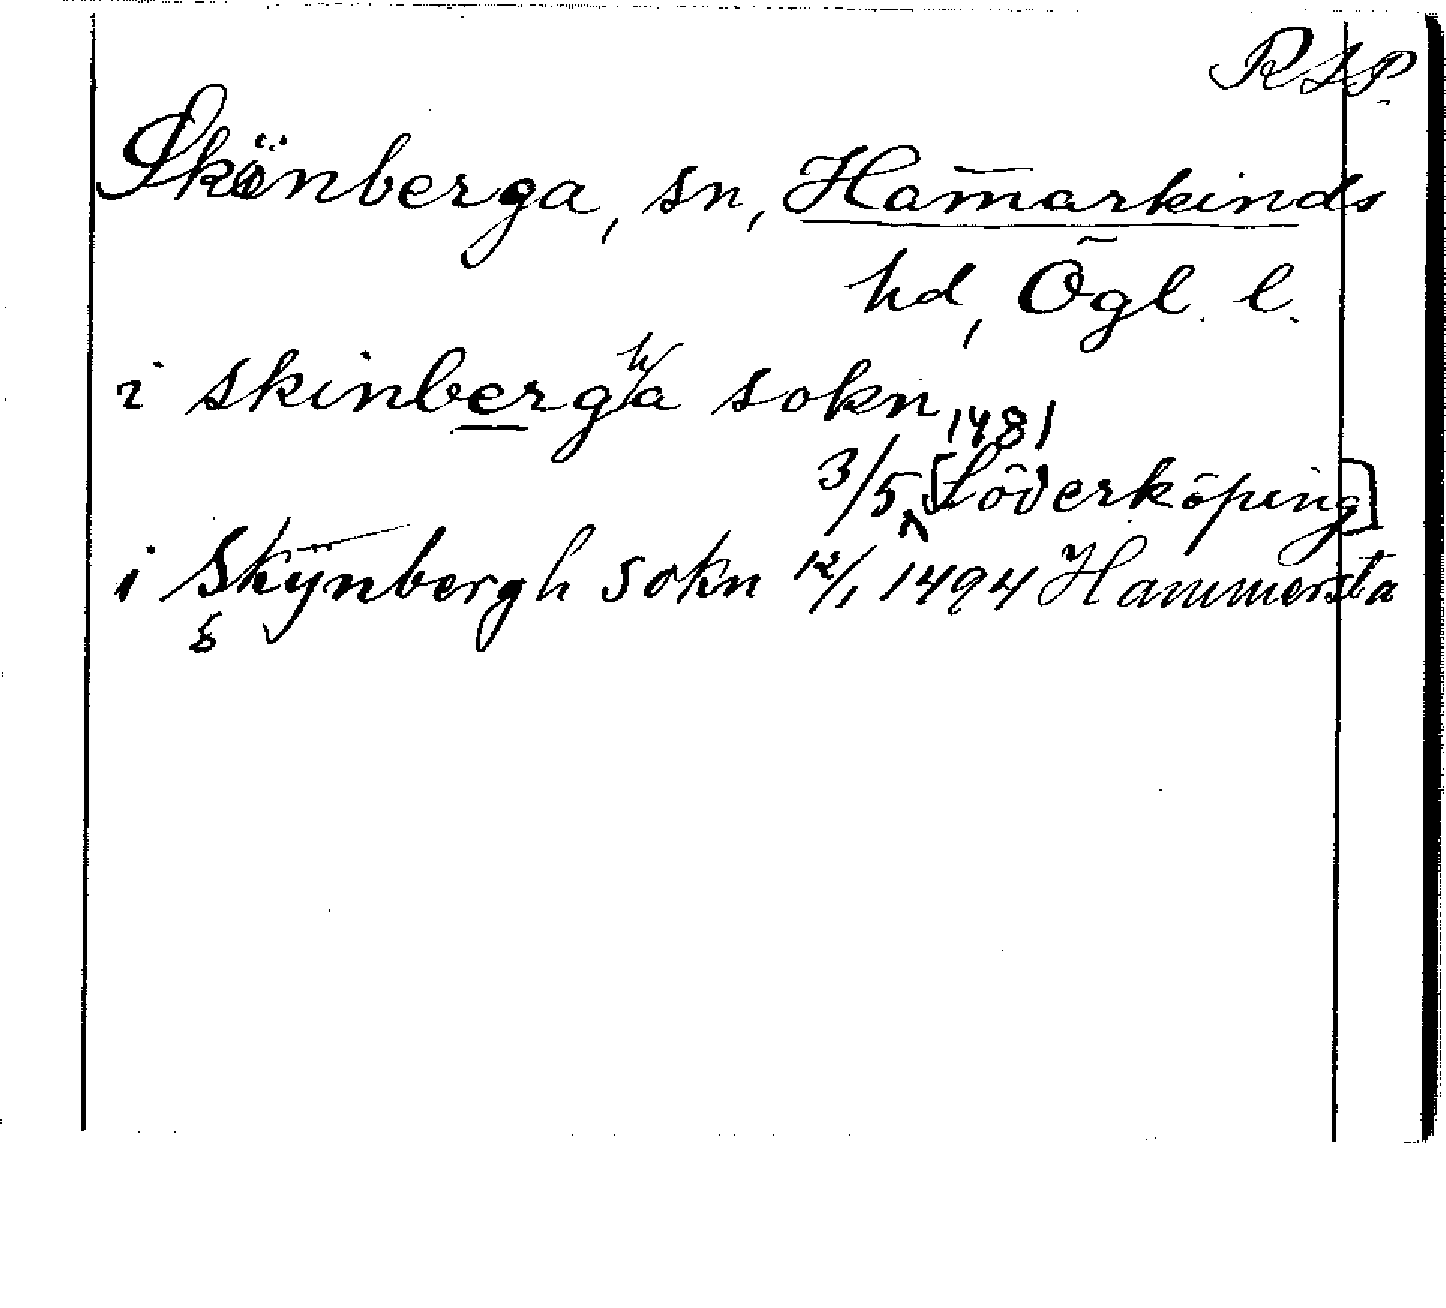 RSP.
Skönberga, sn, Ham̄arkinds
hd, Ögl. l.
i skinbergha sokn
3/5 1481 [Söderköping]
i Skÿnbergh sokn 12/1 1494 Hammersta
s